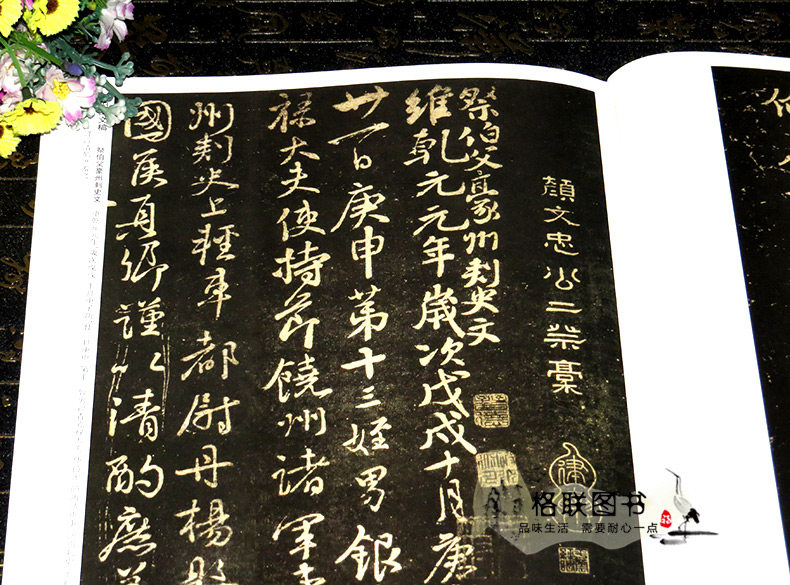 顔文忠公二祭稾
祭伯父豪州刺史文
維乾元元年歲次戊戌十月庚
廿一日庚申第十三姪男銀
祿大夫使持節饒州諸軍事
州刺史上輕車都尉丹楊縣
國侯真卿謹以清酌庶羞
祭伯父豪州刺史文
格联图书
品味生活 需要耐心一点